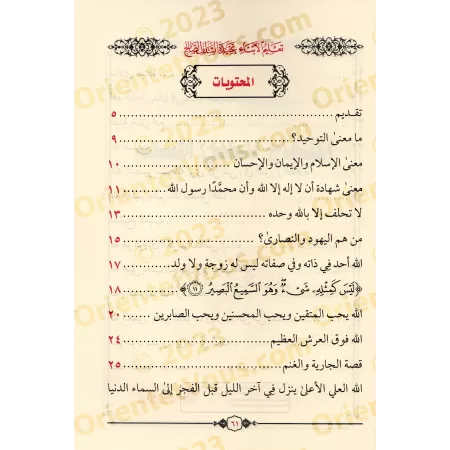 تعليم الأبناء عقيدة السلف
المحتويات
تقديم ٥
ما معنىٰ التوحيد؟ ٩
معنىٰ الإسلام والإيمان والإحسان ١٠
معنىٰ شهادة أن لا إله إلا الله وأن محمَّدًا رسول الله ١١
لا تحلف إلا بالله وحده ١٣
من هم اليهود والنصارىٰ؟ ١٥
الله أحد في ذاته وفي صفاته ليس له زوجة ولا ولد ١٧
﴿لَيْسَ كَمِثْلِهِۦ شَىْءٌ وَهُوَ السَّمِيعُ الْبَصِيرُ ١١﴾ ١٨
الله يحب المتقين ويحب المحسنين ويحب الصابرين ٢٠
الله فوق العرش العظيم ٢٤
قصة الجارية والغنم ٢٥
الله العلي الأعلىٰ ينزل في آخر الليل قبل الفجر إلىٰ السماء الدنيا
٦١
Orientetlous.com © 2023